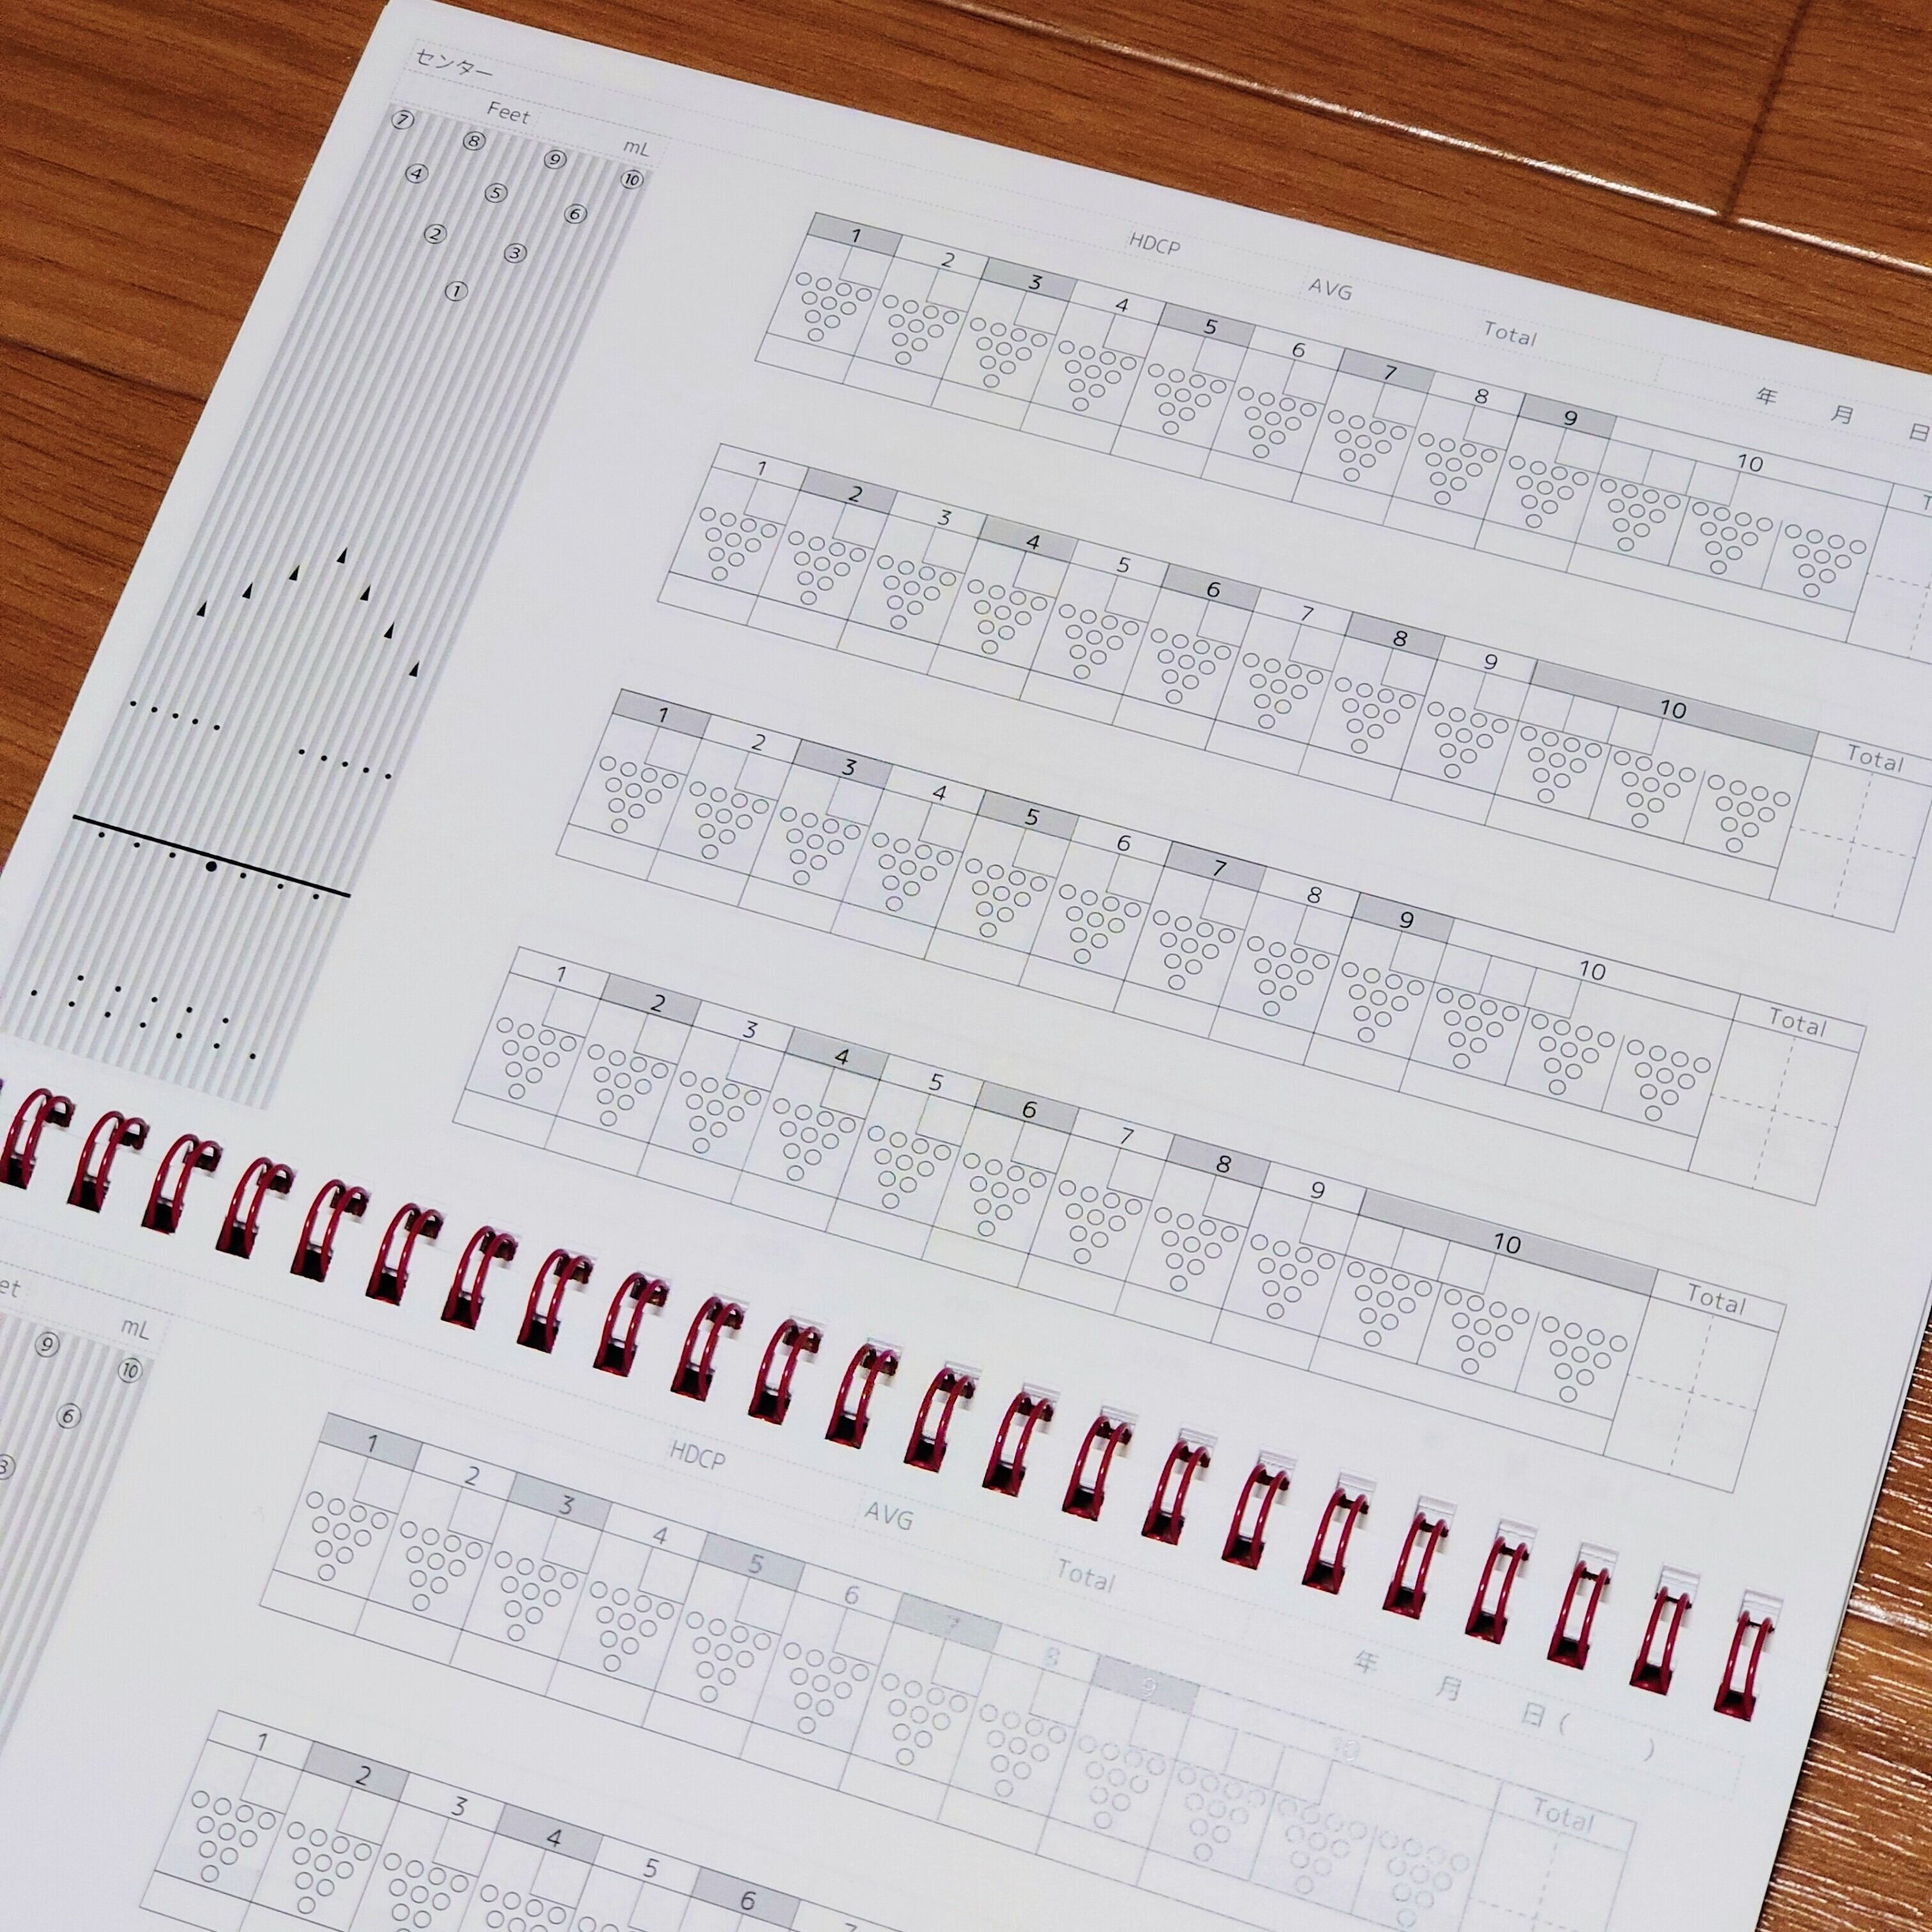 センター
Feet mL
⑦ ⑧ ⑨ ⑩
④ ⑤ ⑥
② ③
①
HDCP AVG Total 年 月 日
1 2 3 4 5 6 7 8 9 10
1 2 3 4 5 6 7 8 9 10 Total
1 2 3 4 5 6 7 8 9 10 Total
1 2 3 4 5 6 7 8 9 10 Total
mL
⑨ ⑩
⑥
HDCP AVG Total 年 月 日 ( )
1 2 3 4 5 6 7 8 9 10 Total
1 2 3 4 5 6